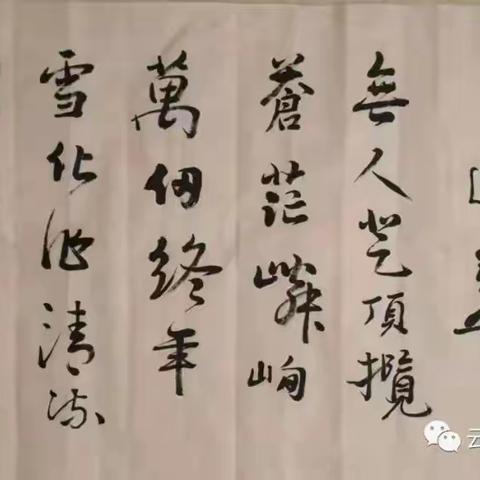 無人登頂攬
蒼茫嶙峋
萬仞終年
雪化作清流
云